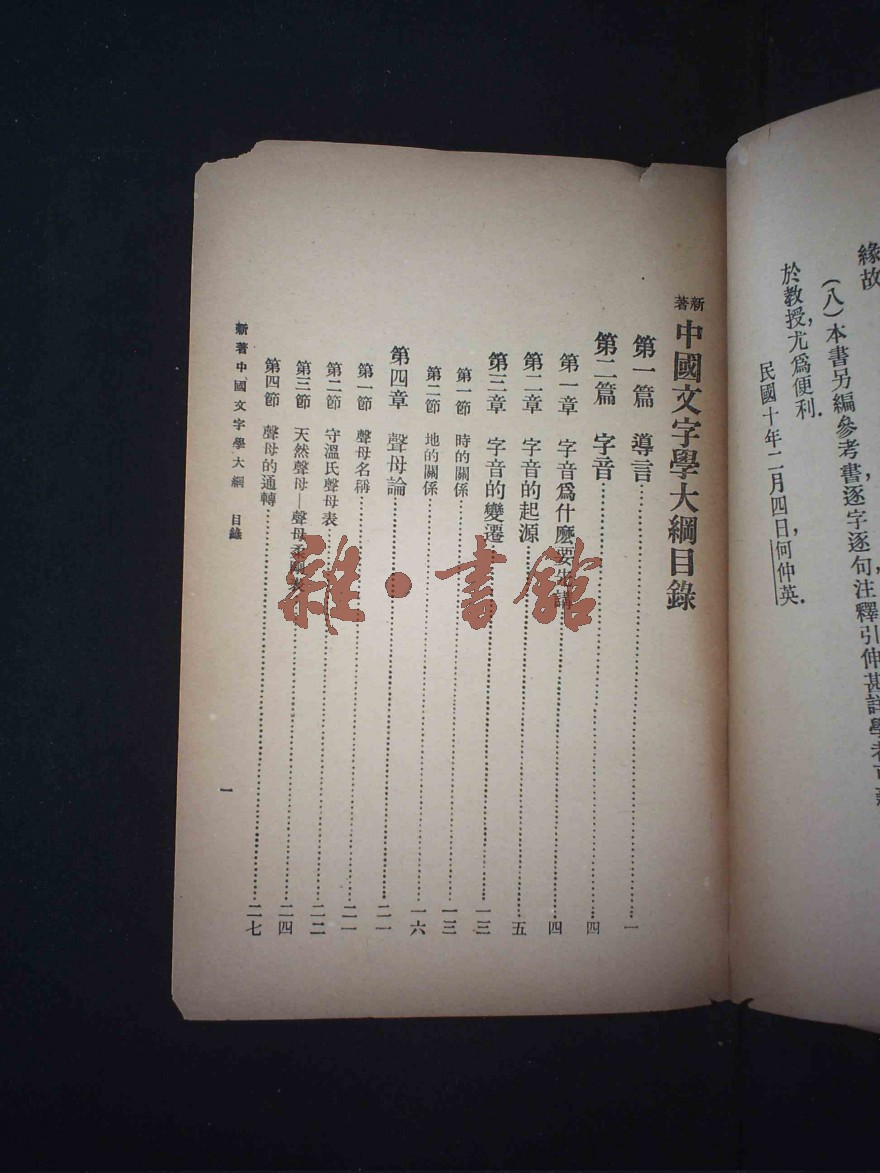 緣故
(八)本書另編參考書,逐字逐句,注釋引伸,甚詳,學者
於教授,尤爲便利.
民國十年二月四日,何仲英.
新著中國文字學大綱目錄
第一篇 導言……一
第二篇 字音……四
第一章 字音爲什麼要先講……四
第二章 字音的起源……五
第三章 字音的變遷……一三
第一節 時的關係……一三
第二節 地的關係……一六
第四章 聲母論……二一
第一節 聲母名稱……二一
第二節 守溫氏聲母表……二二
第三節 天然聲母—聲母柔剛表……二四
第四節 聲母的通轉……二七
新著中國文字學大綱 目錄
一
雜·書館